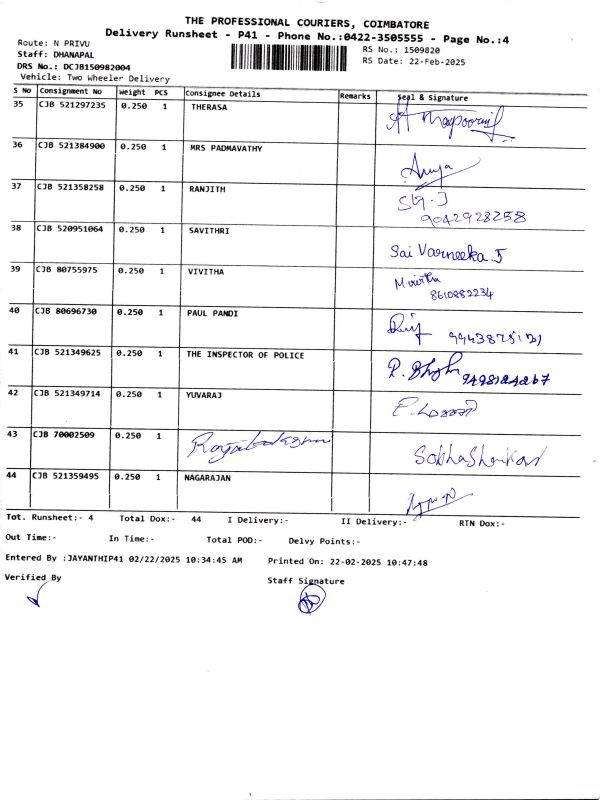 THE PROFESSIONAL COURIERS, COIMBATORE
Delivery Runsheet - P41 - Phone No.:0422-3505555 - Page No.:4
Route: N PRIVU
RS No.: 1509820
Staff: DHANAPAL
RS Date: 22-Feb-2025
DRS No.: DCJB150982004
Vehicle: Two Wheeler Delivery
S No Consignment No Weight PCS Consignee Details Remarks Seal & Signature
35 CJB 521297235 0.250 1 THERASA
36 CJB 521384900 0.250 1 MRS PADMAVATHY
37 CJB 521358258 0.250 1 RANJITH
9042928258
38 CJB 520951064 0.250 1 SAVITHRI Sai Varneeka.J
39 CJB 80755975 0.250 1 VIVITHA
8610882234
40 CJB 80696730 0.250 1 PAUL PANDI
41 CJB 521349625 0.250 1 THE INSPECTOR OF POLICE
42 CJB 521349714 0.250 1 YUVARAJ
43 CJB 70002509 0.250 1
44 CJB 521359495 0.250 1 NAGARAJAN
Tot. Runsheet:- 4 Total Dox:- 44 I Delivery:- II Delivery:- RTN Dox:-
Out Time:- In Time:- Total POD:- Delvy Points:-
Entered By :JAYANTHIP41 02/22/2025 10:34:45 AM Printed On: 22-02-2025 10:47:48
Verified By Staff Signature